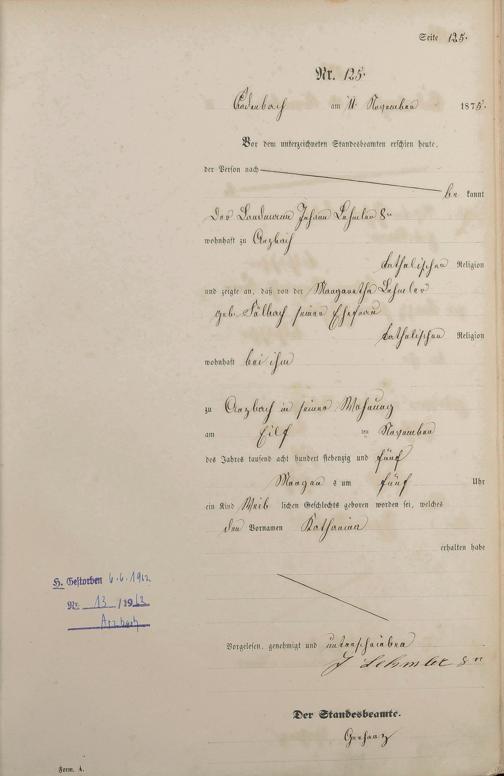 Seite 125.
Nr. 125.
Cadenbach am 11 November 1875.
Vor dem unterzeichneten Standesbeamten erschien heute,
der Person nach
be kannt
der Landmann Johann
wohnhaft zu Arzbach
katholischen Religion
und zeigte an, daß von der Margaretha
geb. seiner Ehefrau
katholischen Religion
wohnhaft bei ihm
zu Arzbach in seiner Wohnung
am Eilf ten November
des Jahres tausend acht hundert siebenzig und fünf
Morgen s um fünf Uhr
ein Kind Weib lichen Geschlechts geboren worden sei, welches
den Vornamen Katharina
erhalten habe
H. Gestorben
Nr. 13 /19
Arzbach
Vorgelesen, genehmigt und unterschrieben
J
Der Standesbeamte.
Form. A.